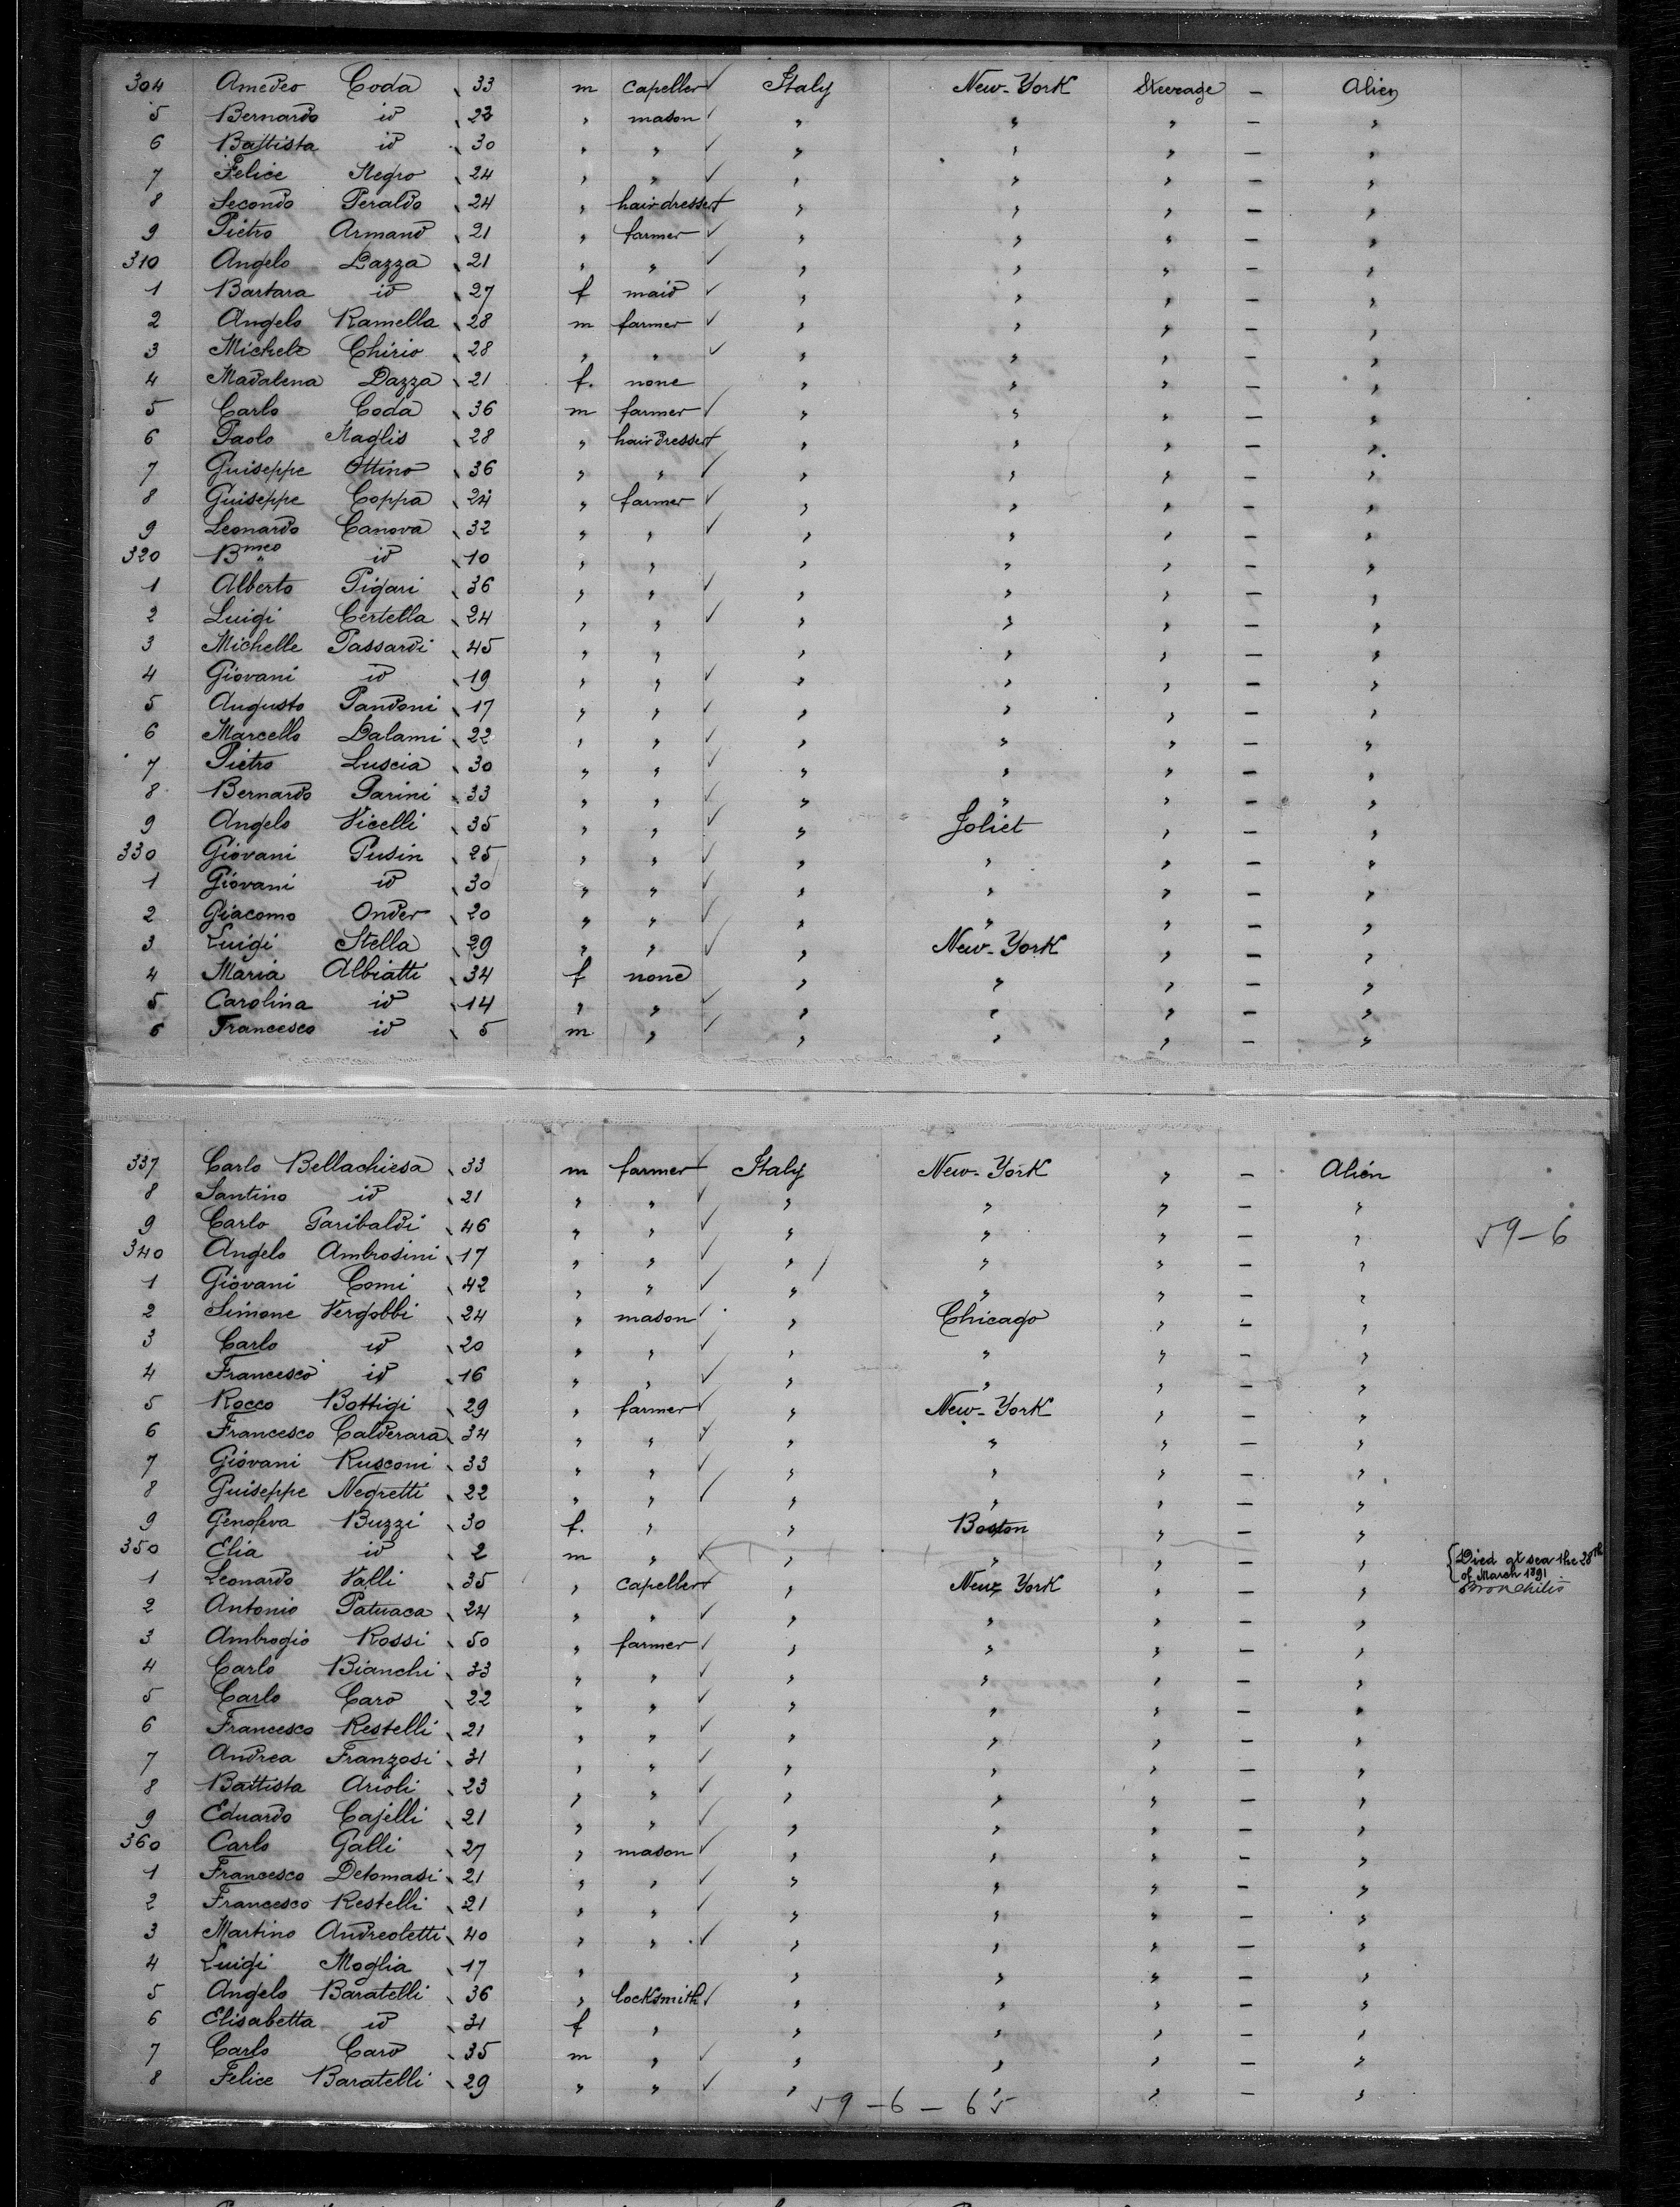 304 Amedeo Coda 33 m capeller Italy New-York Steerage — Alien
5 Bernardo id 23 " mason " " " — "
6 Battista id 30 " " " " " — "
7 Felice Negro 24 " " " " " — "
8 Secondo Peraldo 24 " hairdresser " " " — "
9 Pietro Armand 21 " farmer " " " — "
310 Angelo Lazza 21 " " " " " — "
1 Barbara id 27 f maid " " " — "
2 Angelo Ramella 28 m farmer " " " — "
3 Michele Chirio 28 " " " " " — "
4 Madalena Dazza 21 f. none " " " — "
5 Carlo Coda 36 m farmer " " " — "
6 Paolo Maglis 28 " hairdresser " " " — "
7 Guiseppe Ottino 36 " " " " " — "
8 Guiseppe Coppa 24 " farmer " " " — "
9 Leonardo Canova 32 " " " " " — "
320 Bmeo id 10 " " " " " — "
1 Alberto Pigari 36 " " " " " — "
2 Luigi Certella 24 " " " " " — "
3 Michelle Passardi 45 " " " " " — "
4 Giovani id 19 " " " " " — "
5 Augusto Pandoni 17 " " " " " — "
6 Marcello Dalami 22 " " " " " — "
7 Pietro Luscia 30 " " " " " — "
8 Bernardo Parini 33 " " " " " — "
9 Angelo Vicelli 35 " " " Joliet " — "
330 Giovani Pusin 25 " " " " " — "
1 Giovani id 30 " " " " " — "
2 Giacomo Onder 20 " " " " " — "
3 Luigi Stella 29 " " " New-York " — "
4 Maria Albiatti 34 f none " " " — "
5 Carolina id 14 " " " " " — "
6 Francesco id 5 m " " " " — "
337 Carlo Bellachiesa 33 m farmer Italy New-York " — Alien
8 Santino id 21 " " " " " — "
9 Carlo Garibaldi 46 " " " " " — " 59-6
340 Angelo Ambrosini 17 " " " " " — "
1 Giovani Comi 42 " " " " " — "
2 Simone Vergobbi 24 " mason " Chicago " — "
3 Carlo id 20 " " " " " — "
4 Francesco id 16 " " " " " — "
5 Rocco Bottigi 29 " farmer " New-York " — "
6 Francesco Calderara 34 " " " " " — "
7 Giovani Rusconi 33 " " " " " — "
8 Guiseppe Negretti 22 " " " " " — "
9 Genofeva Buzzi 30 f. " " Boston " — "
350 Elia id 2 m " " " " — " Died at sea the 28th of March 1891 bronchitis
1 Leonardo Valli 35 " capeller " New York " — "
2 Antonio Patuaca 24 " " " " " — "
3 Ambrogio Rossi 50 " farmer " " " — "
4 Carlo Bianchi 33 " " " " " — "
5 Carlo Caro 22 " " " " " — "
6 Francesco Restelli 21 " " " " " — "
7 Andrea Franzosi 31 " " " " " — "
8 Battista Arioli 23 " " " " " — "
9 Eduardo Cajelli 21 " " " " " — "
360 Carlo Galli 27 " mason " " " — "
1 Francesco Detomasi 21 " " " " " — "
2 Francesco Restelli 21 " " " " " — "
3 Martino Andreoletti 40 " " " " " — "
4 Luigi Moglia 17 " " " " — "
5 Angelo Baratelli 36 " locksmith " " " — "
6 Elisabetta id 31 f " " " " — "
7 Carlo Caro 35 m " " " " — "
8 Felice Baratelli 29 " " " " " — "
59-6-65